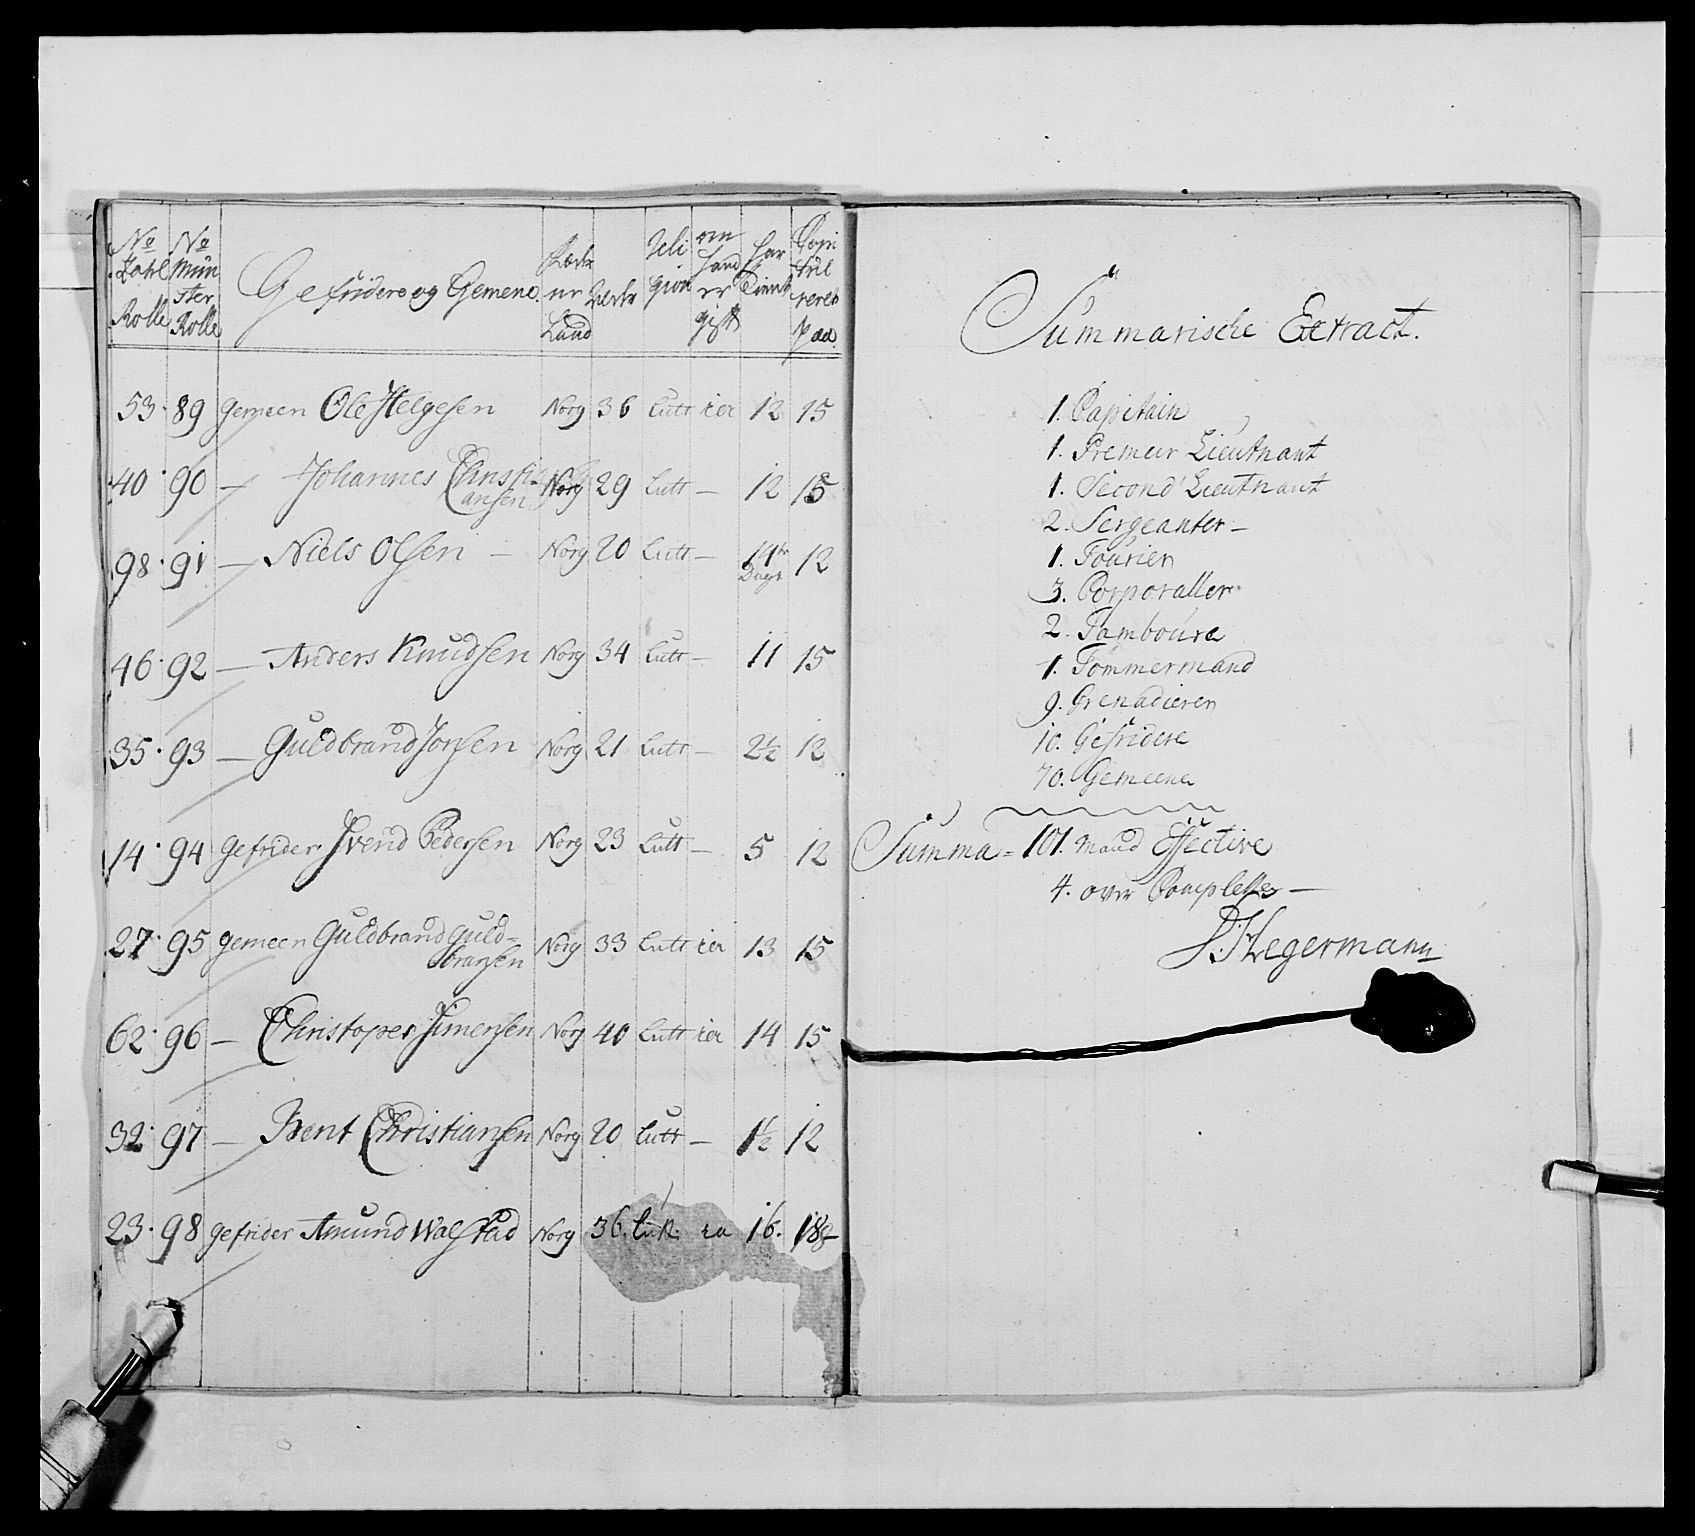 No Zahl Rolle | No Mün ster Rolle | Gefridere og Gemene | Land | Alder | Reli gion | om hand er gift | har tient | Capi tul reret paa
53. 89 gemeen Ole Helgesen Norg 36 Lutt ia 12 15
40. 90 — Johannes Christi-
ansen Norg 29 Lutt — 12 15
98. 91 — Niels Olsen — Norg 20 Lutt — 14 Dage 12
46. 92 — Anders Knudsen Norg 34 Lutt — 11 15
35. 93 — Guldbrand Jonsen Norg 21 Lutt — 2½ 12
14. 94 gefrider Svend Pedersen Norg 23 Lutt — 5 12
27. 95 gemeen Guldbrand Guld-
bransen Norg 33 Lutt ia 13 15
62. 96 — Christopes Simensen Norg 40 Lutt ia 14 15
32. 97 — Bent Christiansen Norg 20 Lutt — 1½ 12
23. 98 gefrider Amund Walstad Norg 36. Lutt. ia 16. 18
Summarische Extract.
1. Capitain
1. Premeir Lieutnant
1. Second Lieutnant
2. Sergeanter —
1. Fourier
3. Corporaller
2. Tamboure
1. Tömmermand
9. Grenadieren
10. Gefridere
70. Gemeene
Summa = 101. Mand Effective
4. over Complette —
Hegermann